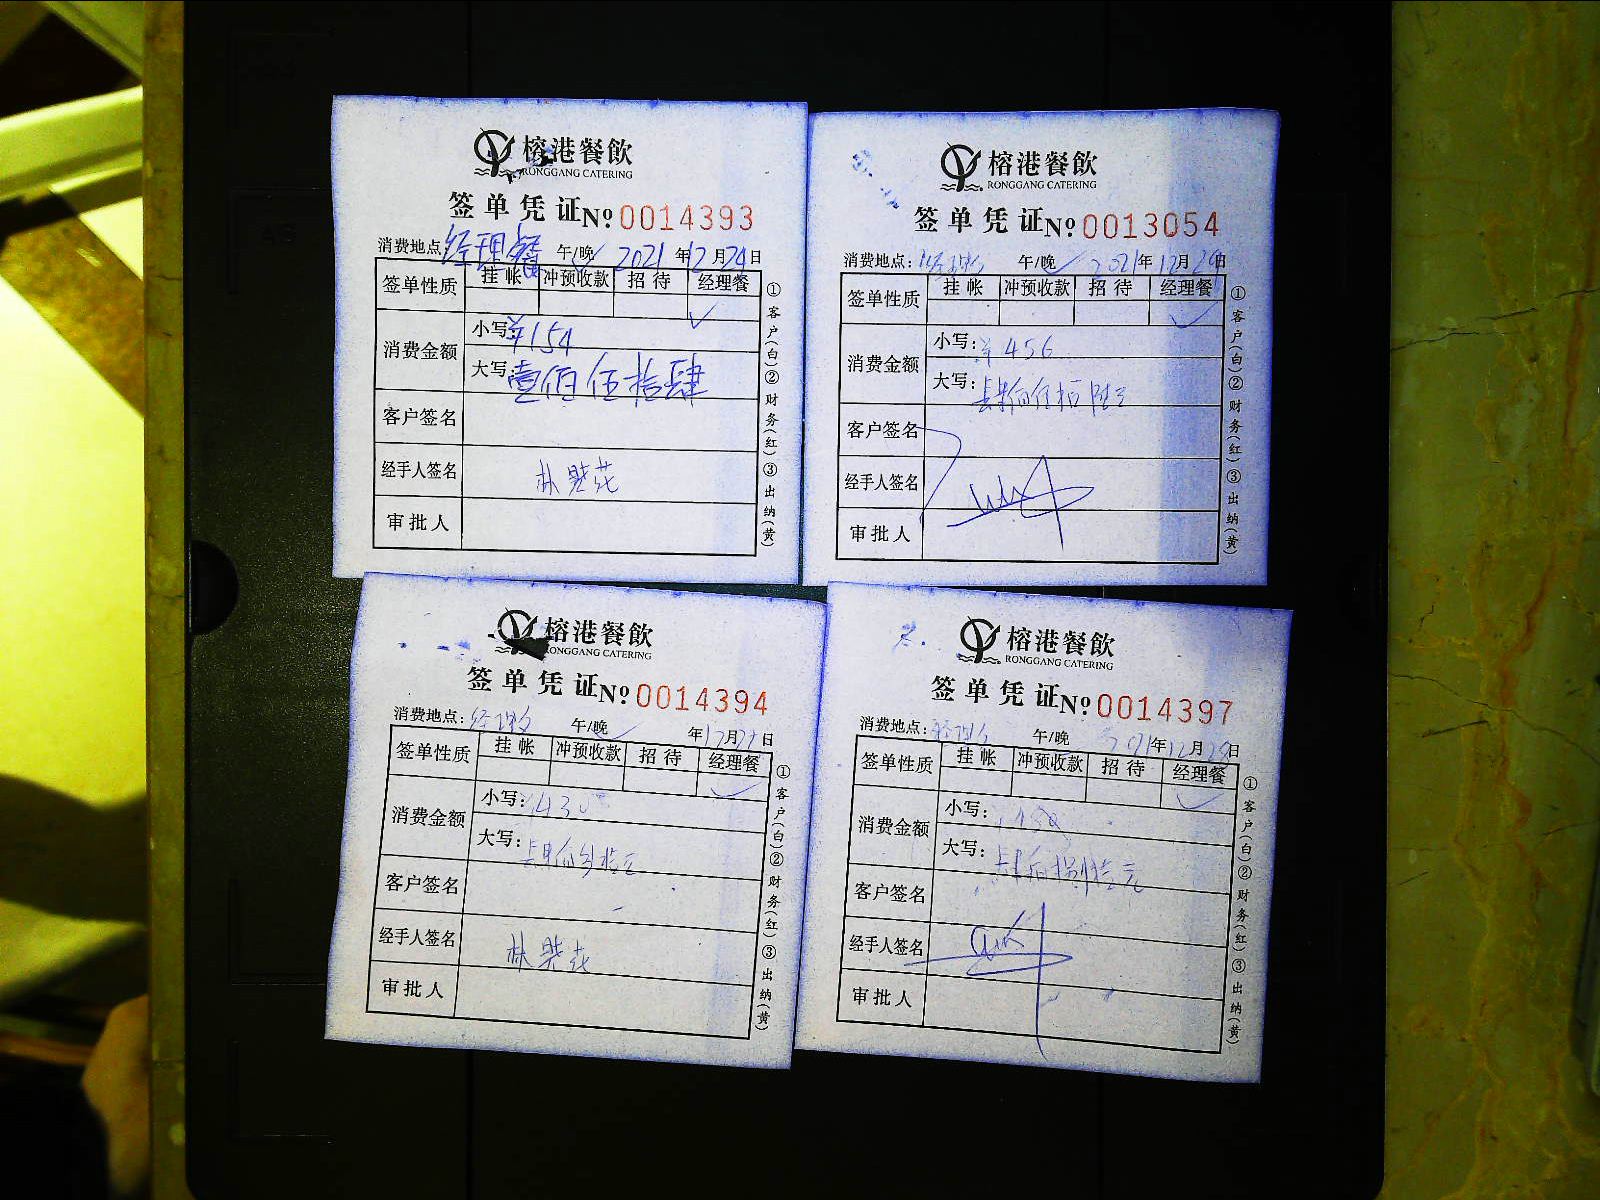 榕港餐飲
RONGGANG CATERING
签单凭证 No 0014393
消费地点: 经理餐 午/晚 ✓ 2021年12月24日
签单性质 挂帐 冲预收款 招待 经理餐
✓
消费金额 小写: ¥154
大写: 壹佰伍拾肆
客户签名
经手人签名
审批人
①客户(白)②财务(红)③出纳(黄)
榕港餐飲
RONGGANG CATERING
签单凭证 No 0013054
消费地点: 午/晚 ✓ 2021年12月
日
签单性质 挂帐 冲预收款 招待 经理餐
✓
消费金额 小写: ¥456
大写:
客户签名
经手人签名
审批人
①客户(白)②财务(红)③出纳(黄)
榕港餐飲
RONGGANG CATERING
签单凭证 No 0014394
消费地点: 午/晚 ✓ 年12月 日
签单性质 挂帐 冲预收款 招待 经理餐
✓
消费金额 小写:
大写:
客户签名
经手人签名
审批人
①客户(白)②财务(红)③出纳(黄)
榕港餐飲
RONGGANG CATERING
签单凭证 No 0014397
消费地点: 午/晚 年12月 日
签单性质 挂帐 冲预收款 招待 经理餐
✓
消费金额 小写:
大写:
客户签名
经手人签名
审批人
①客户(白)②财务(红)③出纳(黄)